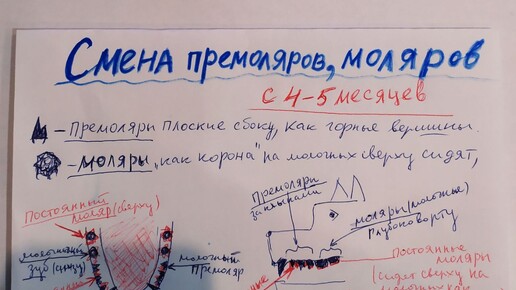 Смена премоляров, моляров
с 4-5 месяцев
– Премоляры плоские сбоку, как горные вершины.
– моляры "как корона" на молочных сверху сидят,
Постоянный
моляр (сверху)
молочный
зуб (снизу)
молочный
премоляр
Премоляры
за клыками
моляры (молочные)
глубоко во рту
Постоянные
моляры
(сидят сверху на
молочных как